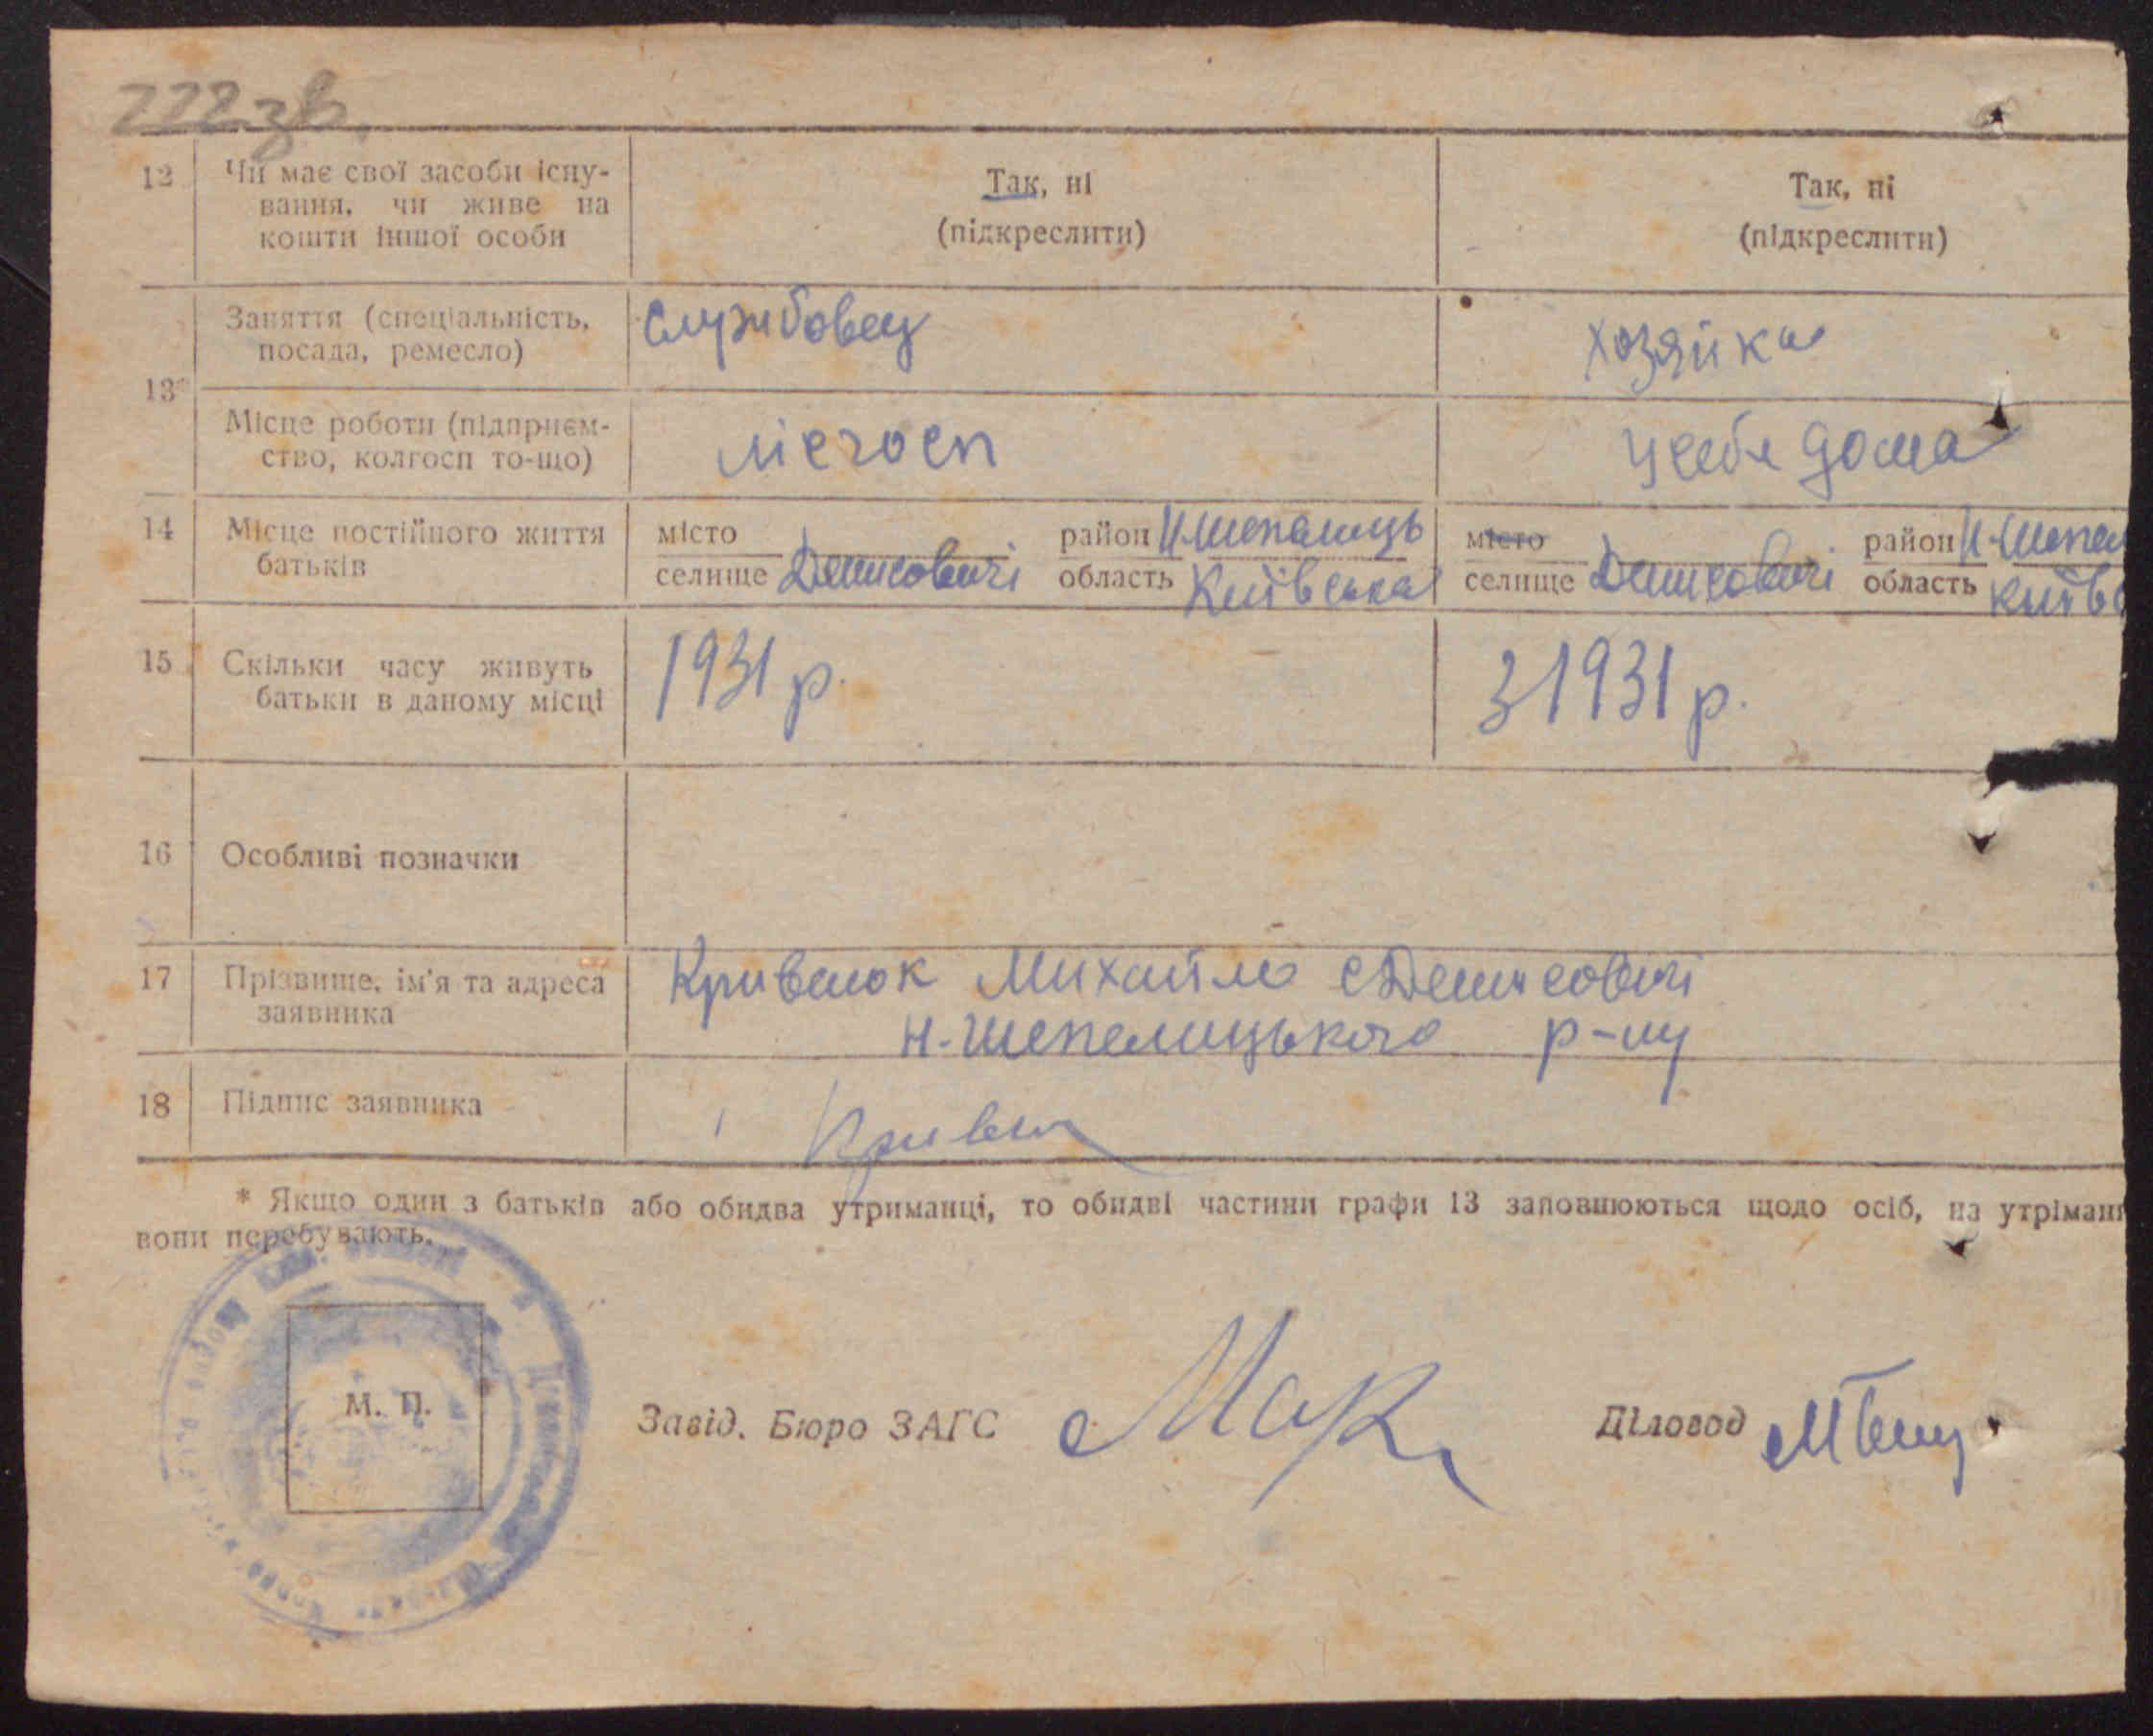 222 зв.
12 Чи має свої засоби існу-
вання, чи живе на
кошти іншої особи
Так, ні
(підкреслити)
Так, ні
(підкреслити)
13*
Заняття (спеціальність,
посада, ремесло)
Службовец
хозяйка
Місце роботи (підприєм-
ство, колгосп то-що)
лісгосп
у себе дома
14 Місце постійного життя
батьків
місто
селище Денисовичі
район Н.Шепелиць
область Київська
місто
селище Денисовичі
район Н-Шепел
область Київс
15 Скільки часу живуть
батьки в даному місці
1931 р.
З 1931 р.
16 Особливі позначки
17 Прізвище, ім'я та адреса
заявника
Кривенок Михайло с Денисовичі
Н-Шепелицького р-ну
18 Підпис заявника
* Якщо один з батьків або обидва утриманці, то обидві частини графи 13 заповнюються щодо осіб, на утріман
вони перебувають.
М. П.
Завід. Бюро ЗАГС
Діловод